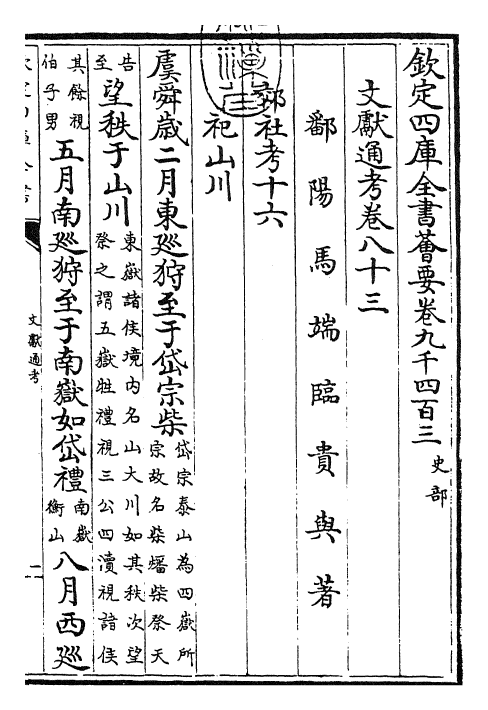 欽定四庫全書薈要卷九千四百三
史部
文獻通考卷八十三
鄱陽馬端臨貴與著
郊社考十六
祀山川
虞舜歲二月東廵狩至于岱宗柴岱宗泰山為四嶽所宗故名柴燔柴祭天
告至望秩于山川東嶽諸侯境内名山大川如其秩次望祭之謂五嶽牲禮視三公四瀆視諸侯
其餘視伯子男五月南廵狩至于南嶽如岱禮南嶽衡山八月西廵
文獻通考